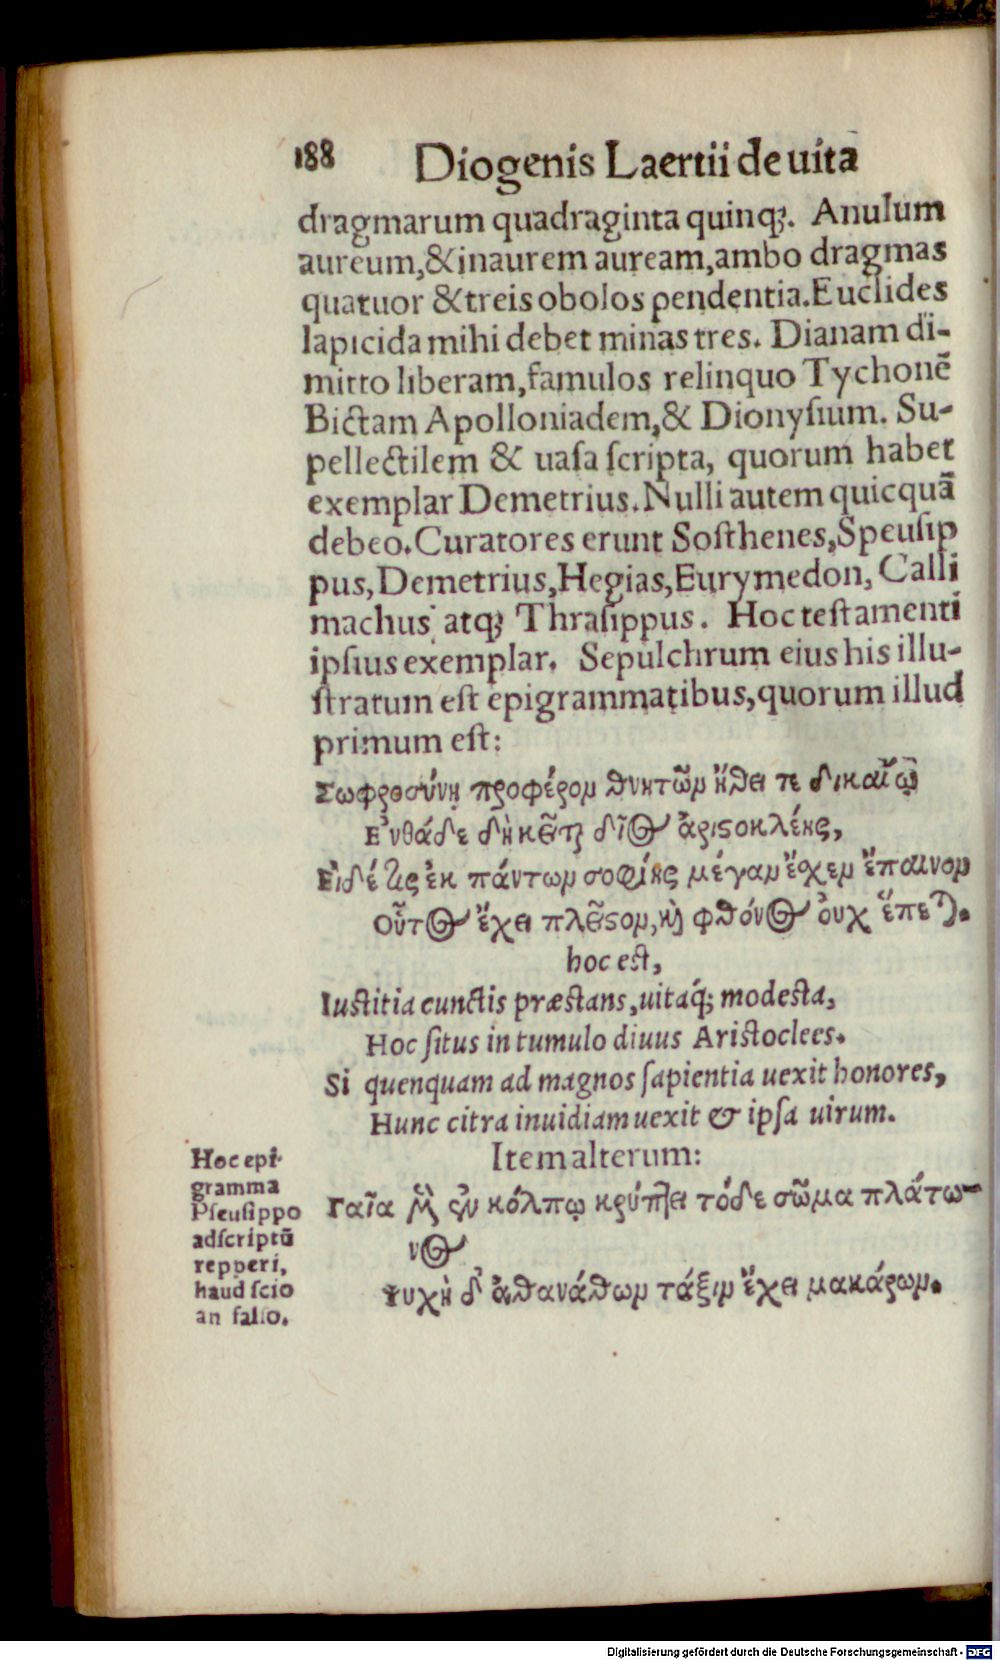 188 Diogenis Laertii de uita
dragmarum quadraginta quinqꝫ. Anulum
aureum,&inaurem auream,ambo dragmas
quatuor &treis obolos pendentia.Euclides
lapicida mihi debet minas tres. Dianam di-
mitto liberam,famulos relinquo Tychonē
Bictam Apolloniadem,& Dionyſium. Su-
pellectilem & uaſa ſcripta, quorum habet
exemplar Demetrius.Nulli autem quicquā
debeo.Curatores erunt Soſthenes,Speuſip
pus,Demetrius,Hegias,Eurymedon, Calli
machus atqꝫ Thraſippus. Hoc teſtamenti
ipſius exemplar. Sepulchrum eius his illu-
ſtratum eſt epigrammatibus,quorum illud
primum eſt:
Σωφροσύνῃ προφέρομ θνητῶμ ἤθει τε δικαίῳ
Ἐνθάδε δὴ κεῖται δῖος ἀριστοκλέης,
Εἰδέ τις ἐκ πάντωμ σοφίης μέγαμ ἔσχεμ ἔπαινομ
Οὗτος ἔχει πλεῖστομ, καὶ φθόνος οὐχ ἕπεται.
hoc eſt,
Iuſtitia cunctis præſtans,uitaq́ꝫ modeſta,
Hoc ſitus in tumulo diuus Ariſtoclees.
Si quenquam ad magnos ſapientia uexit honores,
Hunc citra inuidiam uexit & ipſa uirum.
Item alterum:
Γαῖα μὲν ἐν κόλπῳ κρύπτει τόδε σῶμα πλάτω-
νος
Ψυχὴ δ' ἀθανάθωμ τάξιμ ἔχει μακάρωμ.
Hoc epi-
gramma
Pſeuſippo
adſcriptū
repperi,
haud ſcio
an falſo.
Digitalisierung gefördert durch die Deutsche Forschungsgemeinschaft - DFG